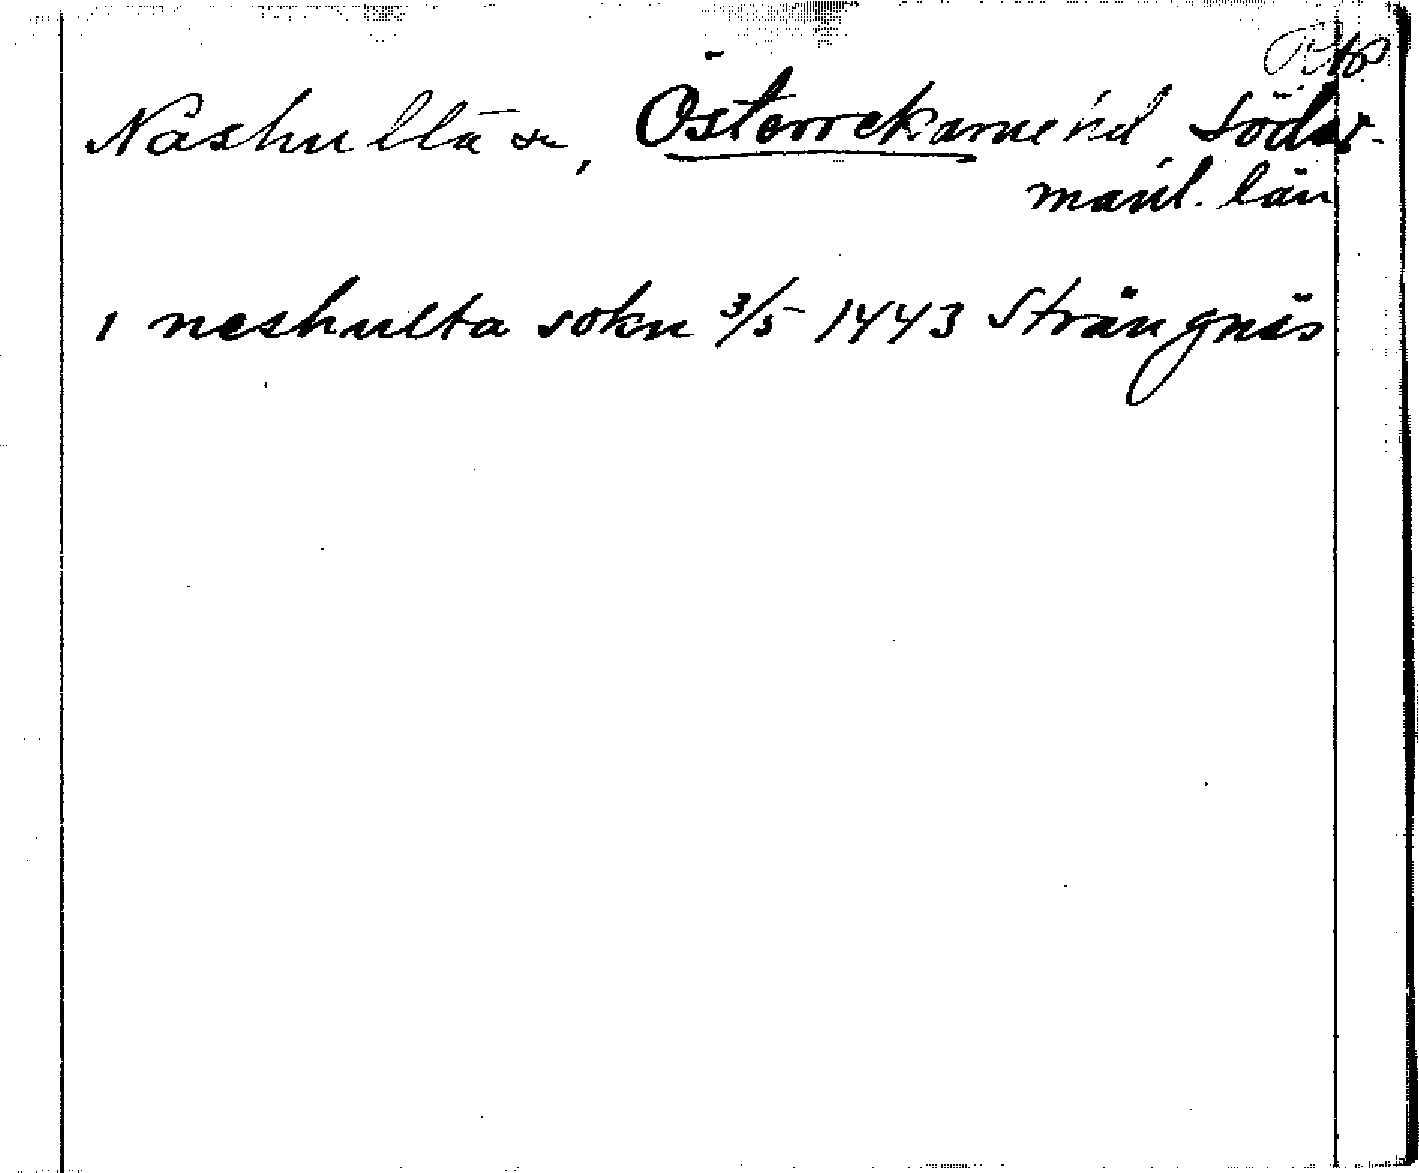 Näshulta sn, Österrekarne hd, Söder-
manl. län
i neshulta sokn 3/5 1443 Strängnäs